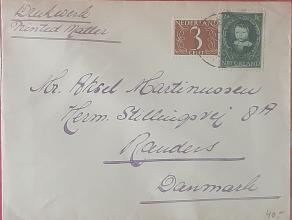 Drukwerk
Printed Matter
NEDERLAND
3
CENT
NEDERLAND
Mr. Aksel Martinussen
Herm. Stillingsvej 8A
Randers
Danmark
40,-